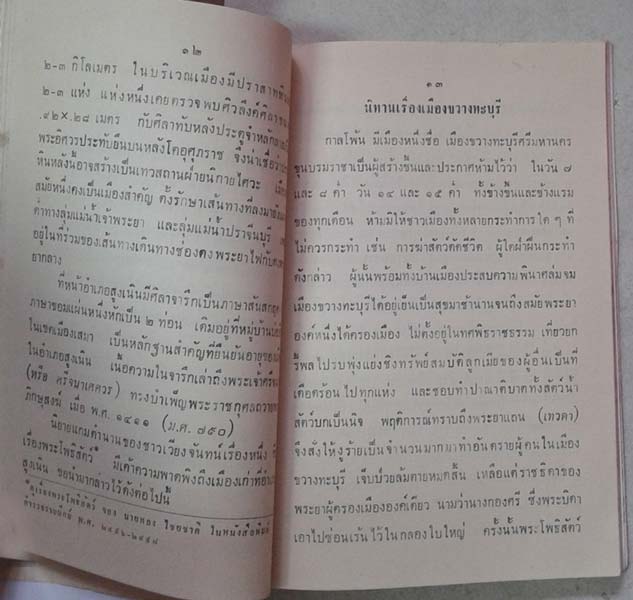 ๑๒
๒-๓ กิโลเมตร ในบริเวณเมืองมีปราสาทหิน
๒-๓ แห่ง แห่งหนึ่งเคยตรวจพบศิวลึงค์ศิลาขนาด
.๙๒×.๒๘ เมตร กับศิลาทับหลังประตูจำหลักลาย
พระอิศวรประทับยืนบนหลังโคอุศุภราช จึงน่าเชื่อว่า
หินหลังนั้นอาจสร้างเป็นเทวสถานฝ่ายนิกายไศวะ
สมัยหนึ่งคงเป็นเมืองสำคัญ ตั้งรักษาเส้นทางที่ลงมา
ต่ำทางลุ่มแม่น้ำเจ้าพระยา และลุ่มแม่น้ำปราจีนบุรี
อยู่ในที่ร่วมของเส้นทางเดินทางช่องดงพระยาไฟกับดง
ยากลาง
ที่หน้าอำเภอสูงเนินมีศิลาจารึกเป็นภาษาสันสกฤต
ภาษาขอมแผ่นหนึ่งหักเป็น ๒ ท่อน เดิมอยู่ที่หมู่บ้าน
ในเขตเมืองเสมา เป็นหลักฐานสำคัญที่ยืนยันอายุของ
ในอำเภอสูงเนิน เนื้อความในจารึกเล่าถึงพระเจ้าศรี
(หรือ ศรีจนาเศศวร) ทรงบำเพ็ญพระราชกุศลถวาย
ภิกษุสงฆ์ เมื่อ พ.ศ. ๑๔๑๑ (ม.ศ. ๗๙๐)
นิยายแกมตำนานของชาวเวียงจันทน์เรื่องหนึ่ง
เรื่องพระโพธิสัตว์* มีเค้าความพาดพิงถึงเมืองเก่าที่อำเภอ
สูงเนิน ขอนำมากล่าวไว้ดังต่อไปนี้
*ดูเรื่องพระโพธิสัตว์ ของ นายทอง ไชยชาติ ในหนังสือพิมพ์
ตำรวจรายปักษ์ พ.ศ. ๒๔๙๖-๒๔๙๘
๑๓
นิทานเรื่องเมืองขวางทะบุรี
กาลโพ้น มีเมืองหนึ่งชื่อ เมืองขวางทะบุรีศรีมหานคร
ขุนบรมราชาเป็นผู้สร้างขึ้นและประกาศห้ามไว้ว่า ในวัน ๗
และ ๘ ค่ำ วัน ๑๔ และ ๑๕ ค่ำ ทั้งข้างขึ้นและข้างแรม
ของทุกเดือน ห้ามมิให้ชาวเมืองทั้งหลายกระทำการใด ๆ ที่
ไม่ควรกระทำ เช่น การฆ่าสัตว์ตัดชีวิต ผู้ใดฝ่าฝืนกระทำ
ดังกล่าว ผู้นั้นพร้อมทั้งบ้านเมืองประสบความพินาศล่มจม
เมืองขวางทะบุรีได้อยู่เย็นเป็นสุขมาช้านานจนถึงสมัยพระยา
องค์หนึ่งได้ครองเมือง ไม่ตั้งอยู่ในทศพิธราชธรรม เที่ยวยก
รี้พลไปรบพุ่งแย่งชิงทรัพย์สมบัติลูกเมียของผู้อื่นเป็นที่
เดือดร้อนไปทุกแห่ง และชอบทำปาณาติบาตทั้งสัตว์น้ำ
สัตว์บกเป็นนิจ พฤติการณ์ทราบถึงพระยาแถน (เทวดา)
จึงสั่งให้งูร้ายเป็นจำนวนมากมาทำอันตรายผู้คนในเมือง
ขวางทะบุรี เจ็บป่วยล้มตายหมดสิ้น เหลือแต่ราชธิดาของ
พระยาผู้ครองเมืององค์เดียว นามว่านางกองศรี ซึ่งพระบิดา
เอาไปซ่อนเร้นไว้ในกลองใบใหญ่ ครั้งนั้นพระโพธิสัตว์